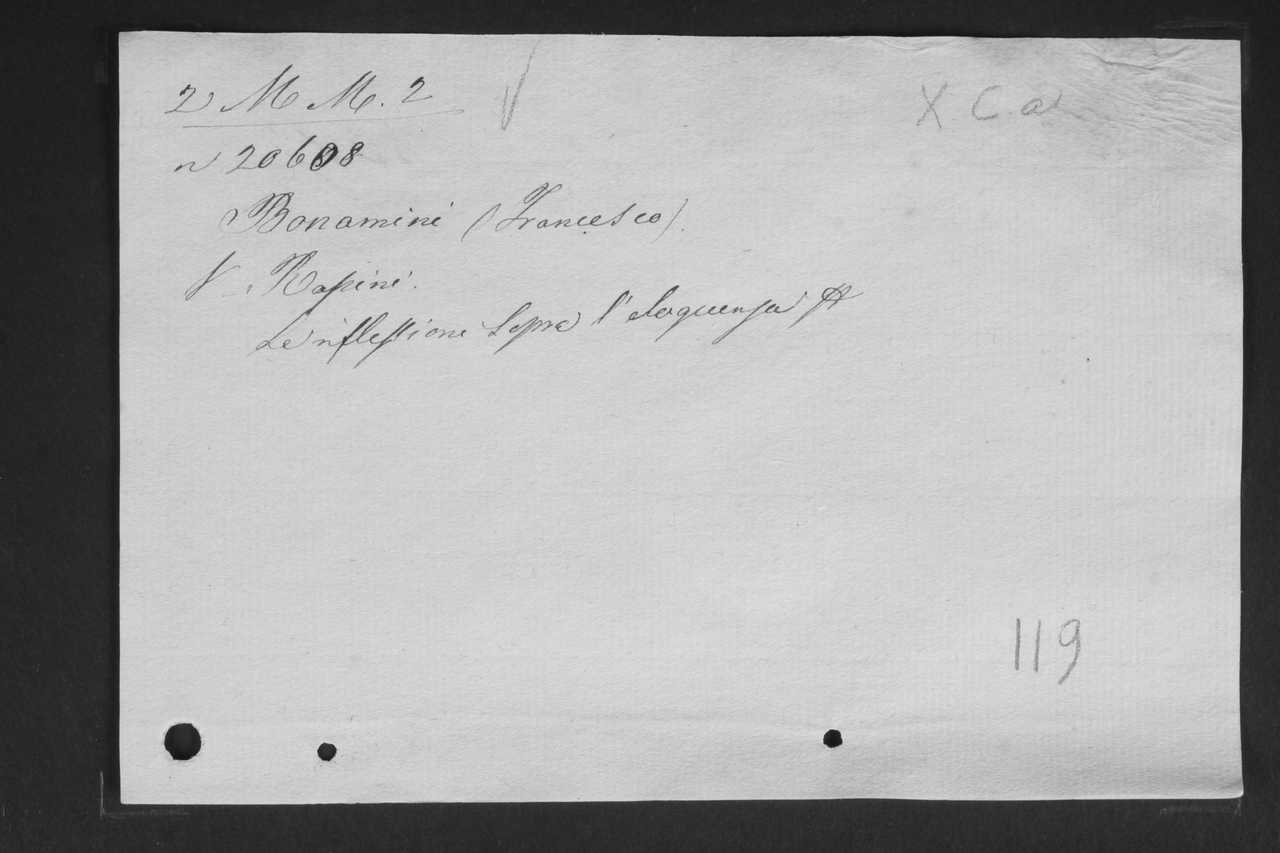 2 M M. 2
X. C. a
n 20608
Bonamini (Francesco).
V. Rapini.
Le riflessione Sopra l'eloquenza
119